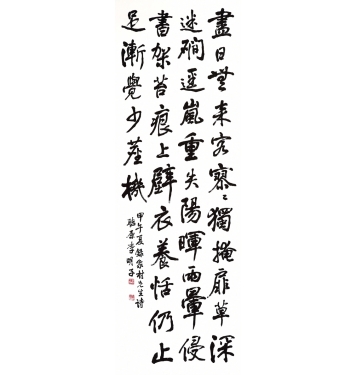 盡日無来客寥〻獨掩扉草深
迷磵逕嵐重失陽暉雨暈侵
書架苔痕上壁衣養恬仍止
足漸覺少塵機
甲午夏錄食村先生詩
李明子